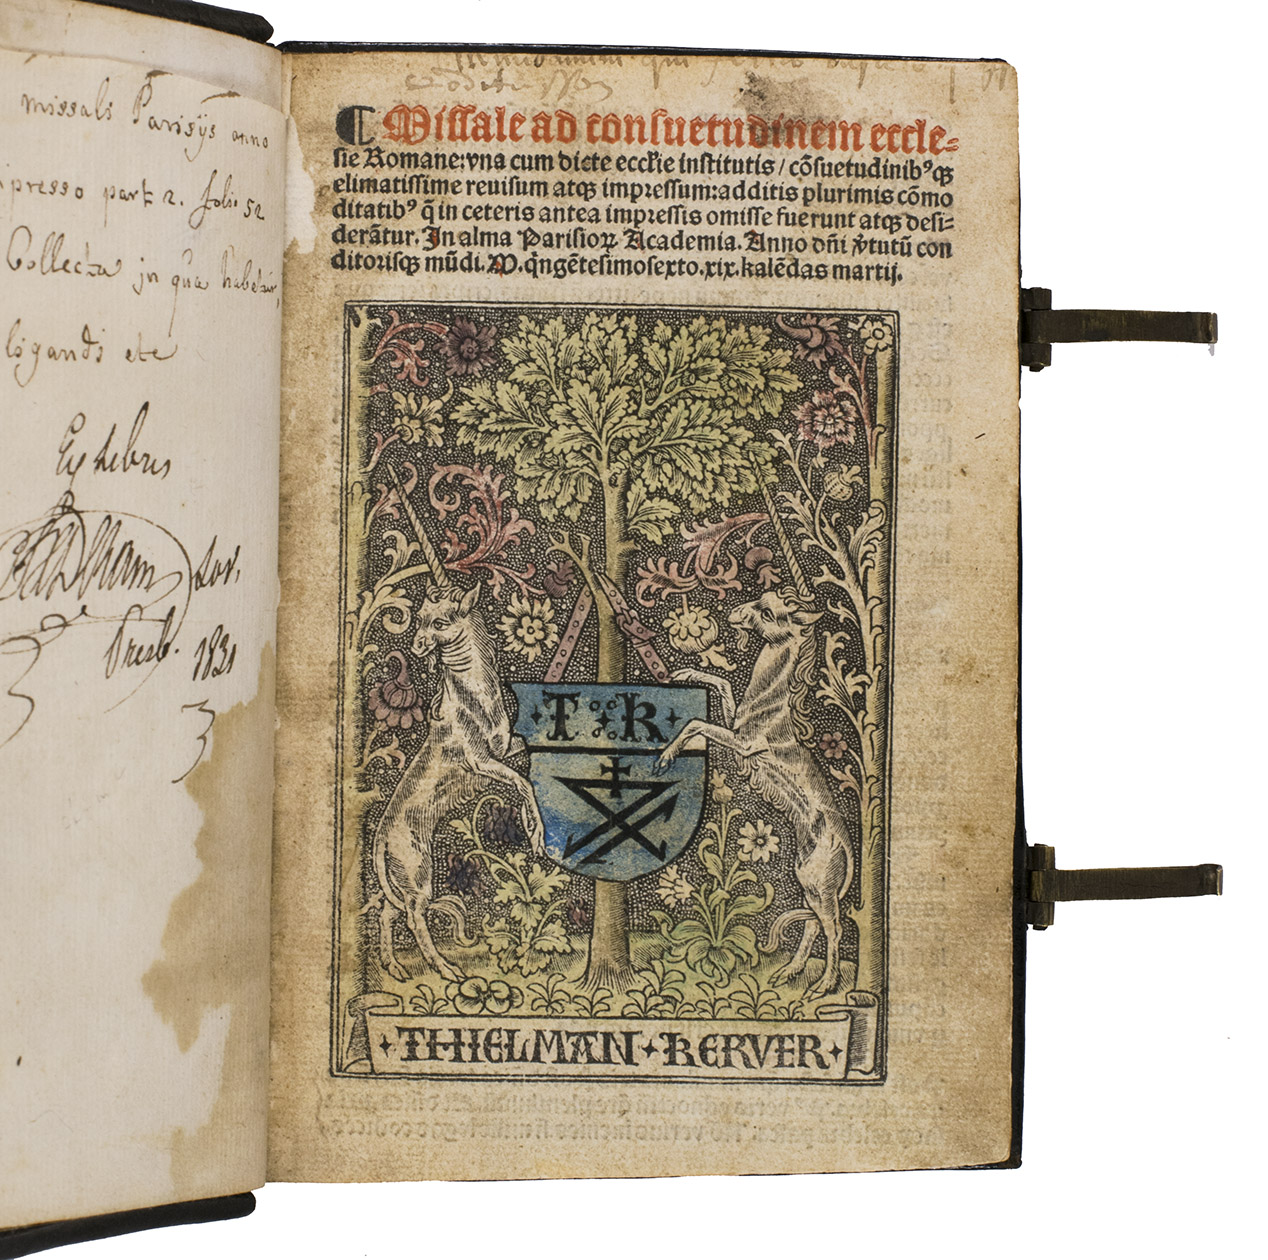 missals Parisijs anno
presso part 2. folio 52
Collecta in qua habetur,
ligandi etc
Ex Libris
Presb. 1831
¶ Missale ad consuetudinem eccle-
sie Romane: vna cum dicte eccl̄ie institutis / cōsuetudinibꝰqꝫ
elimatissime reuisum atqꝫ impressum: additis plurimis cōmo
ditatibꝰ q̄ in ceteris antea impressis omisse fuerunt atqꝫ desi-
derātur. In alma Parisioꝝ Academia. Anno dn̄i v̓tutū con
ditorisqꝫ mūdi. M. q̓ngētesimosexto. xix. kalēdas martij.
T R
THIELMAN KERVER